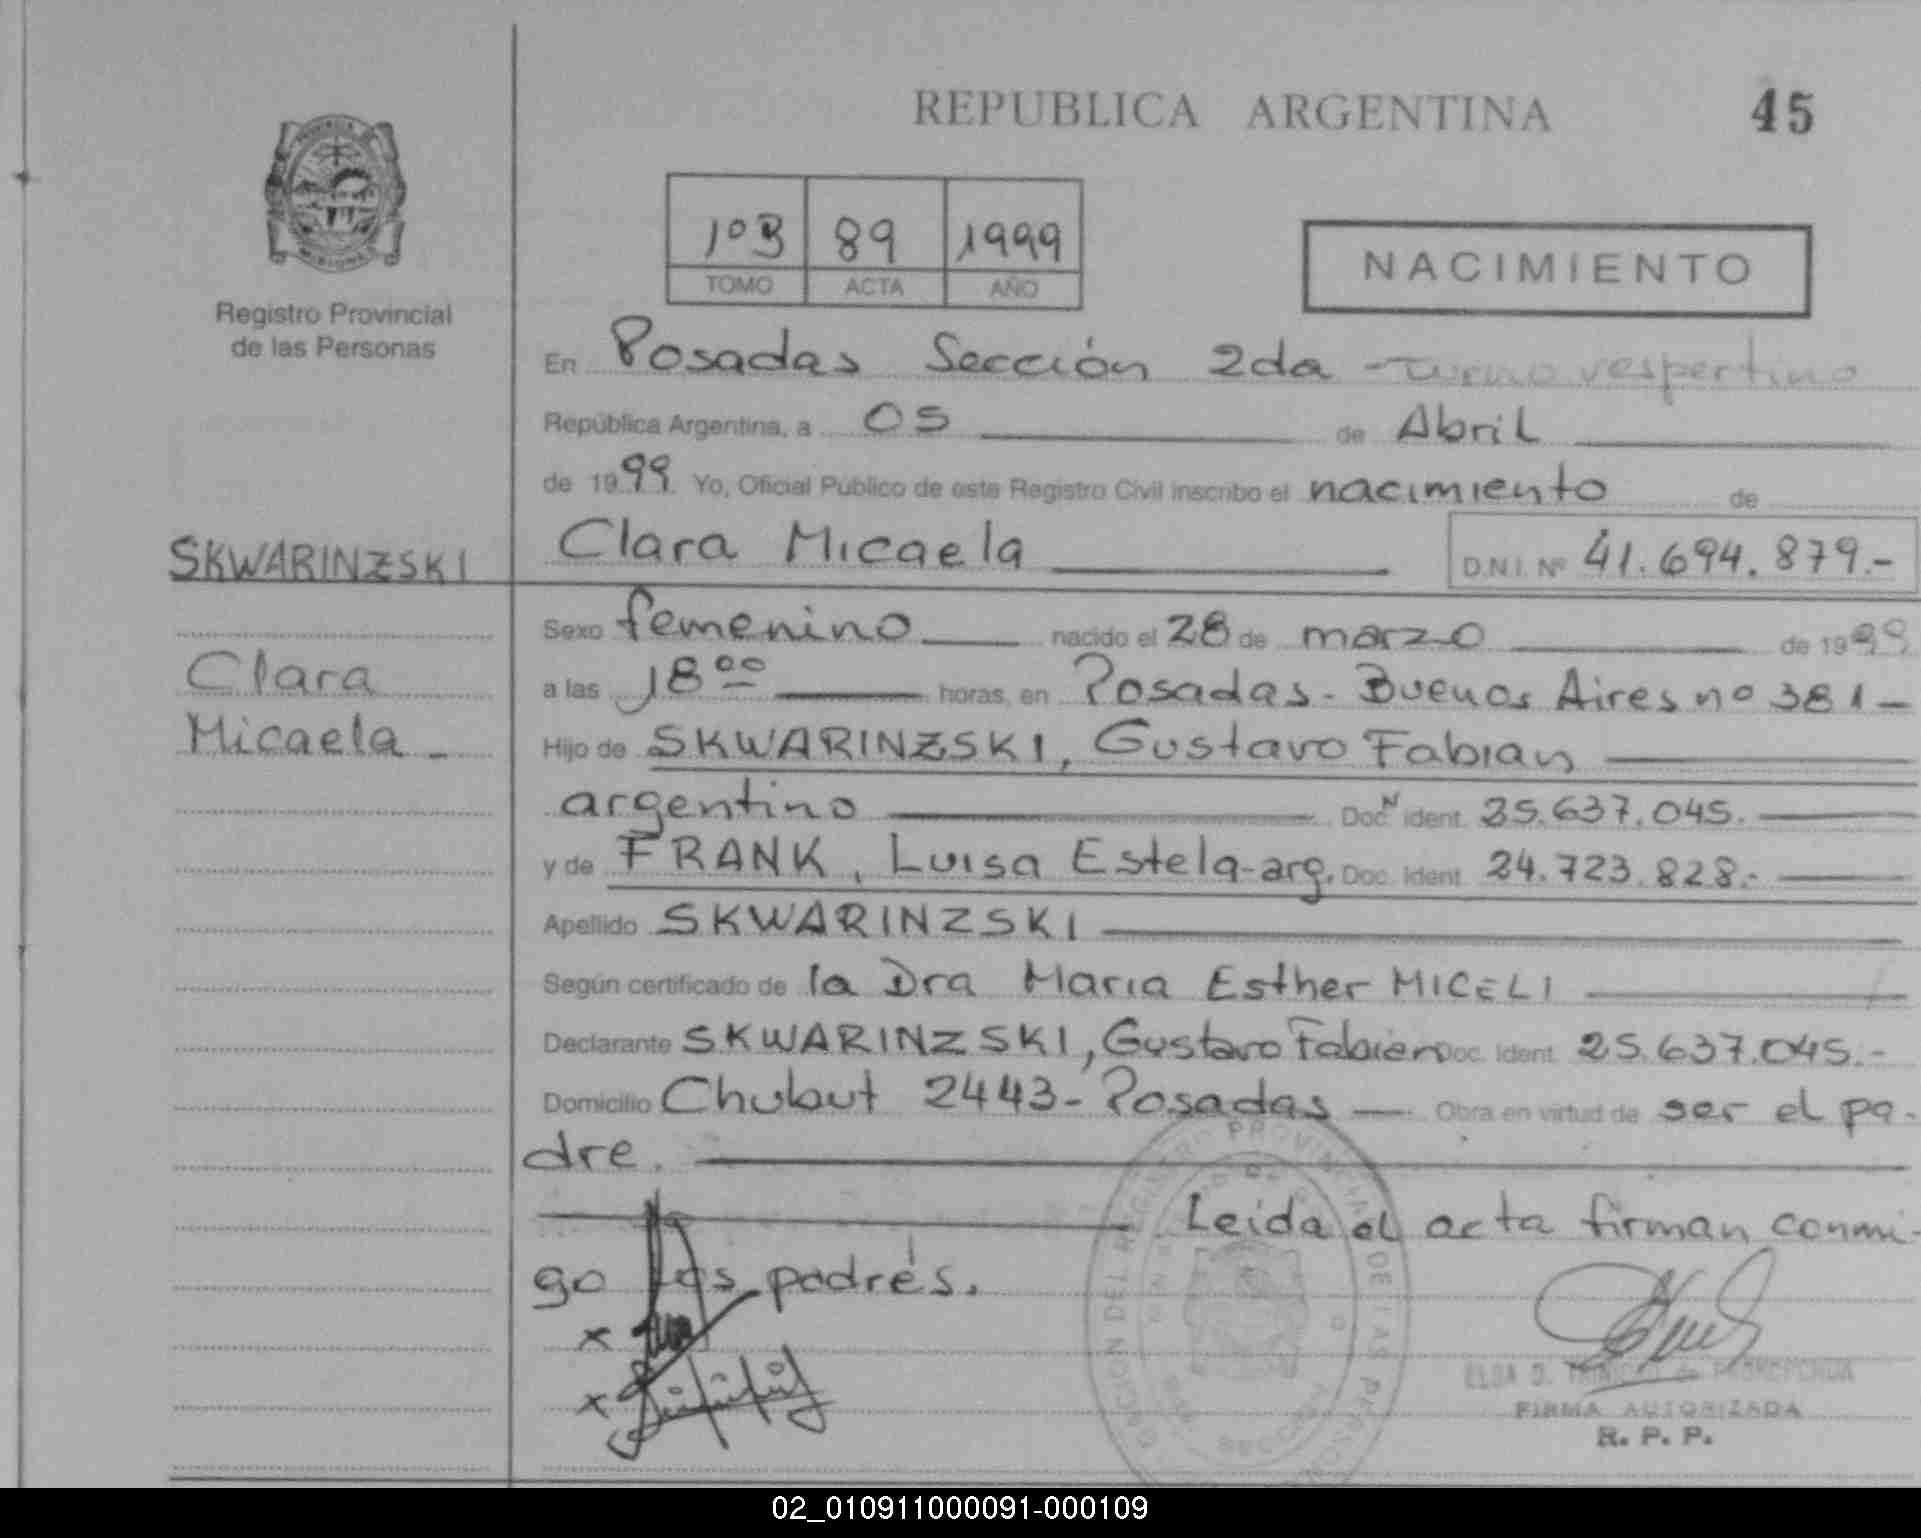 REPUBLICA ARGENTINA
45
10B 89 1999
TOMO ACTA AÑO
NACIMIENTO
Registro Provincial
de las Personas
En Posadas Sección 2da - turno vespertino
República Argentina, a 05 de Abril
de 1999 Yo, Oficial Público de este Registro Civil inscribo el nacimiento de
SKWARINZSKI
Clara Micaela D.N.I. Nº 41.694.879.-
Sexo femenino nacido el 28 de marzo de 1999
Clara
a las 18 00 horas, en Posadas - Buenos Aires nº 381 -
Micaela -
Hijo de SKWARINZSKI, Gustavo Fabian
argentino Doc. N ident. 25.637.045.
y de FRANK, Luisa Estela-arg. Doc. Ident. 24.723.828.-
Apellido SKWARINZSKI
Según certificado de la Dra Maria Esther MICELI
Declarante SKWARINZSKI, Gustavo Fabian Doc. Ident. 25.637.045.-
Domicilio Chubut 2443 - Posadas - Obra en virtud de ser el pa-
dre.
Leida el acta firman conmi-
go los padres.
x
x
FIRMA AUTORIZADA
R. P. P.
02_010911000091-000109